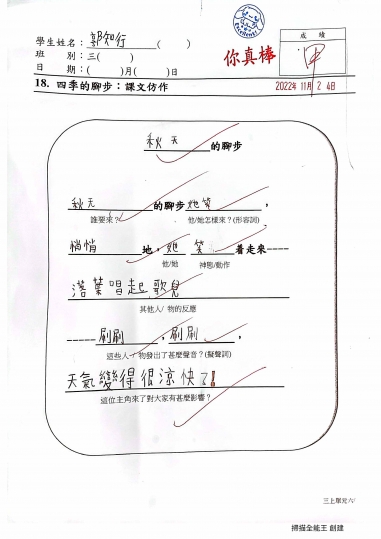 學生姓名：郭知行（　）
班　別：三（　）
日　期：（　）月（　）日
Excellent
你真棒
成績
甲
2022年 11月 2 4日
18. 四季的腳步：課文仿作
秋天的腳步
秋天的腳步她笑，
誰要來？ 他/她怎樣來？(形容詞)
悄悄地，她笑着走來----
他/她 神態/動作
落葉唱起歌兒
其他人/ 物的反應
-----刷刷，刷刷，
這些人、物發出了甚麼聲音？(擬聲詞)
天氣變得很涼快了！
這位主角來了對大家有甚麼影響？
三上單元六/
掃描全能王 創建